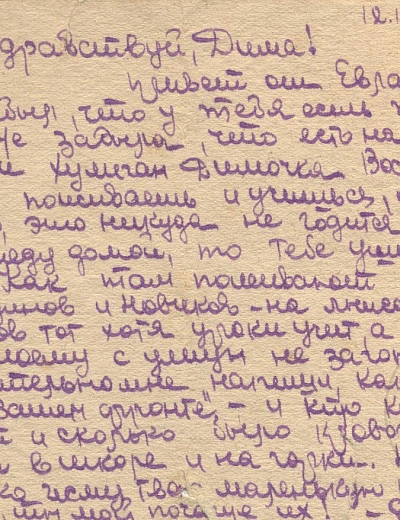 12.1
дравствуй, Дима!
привет от Евра
был, что у тебя есть
не забыла, что есть на
и хулиган Димочка. Вос
поживаешь и учишься,
, это никуда не годится
еду домой, то тебе уши
Как там поживают
инов и Новиков – на лысо
ов тот хотя уроки учит а
моему с улицы не заго
ательно мне напиши, ка
вашем фронте", – и кто к
и сколько было кровоп
в школе и на горки.
твою маленькую
мой почаще их